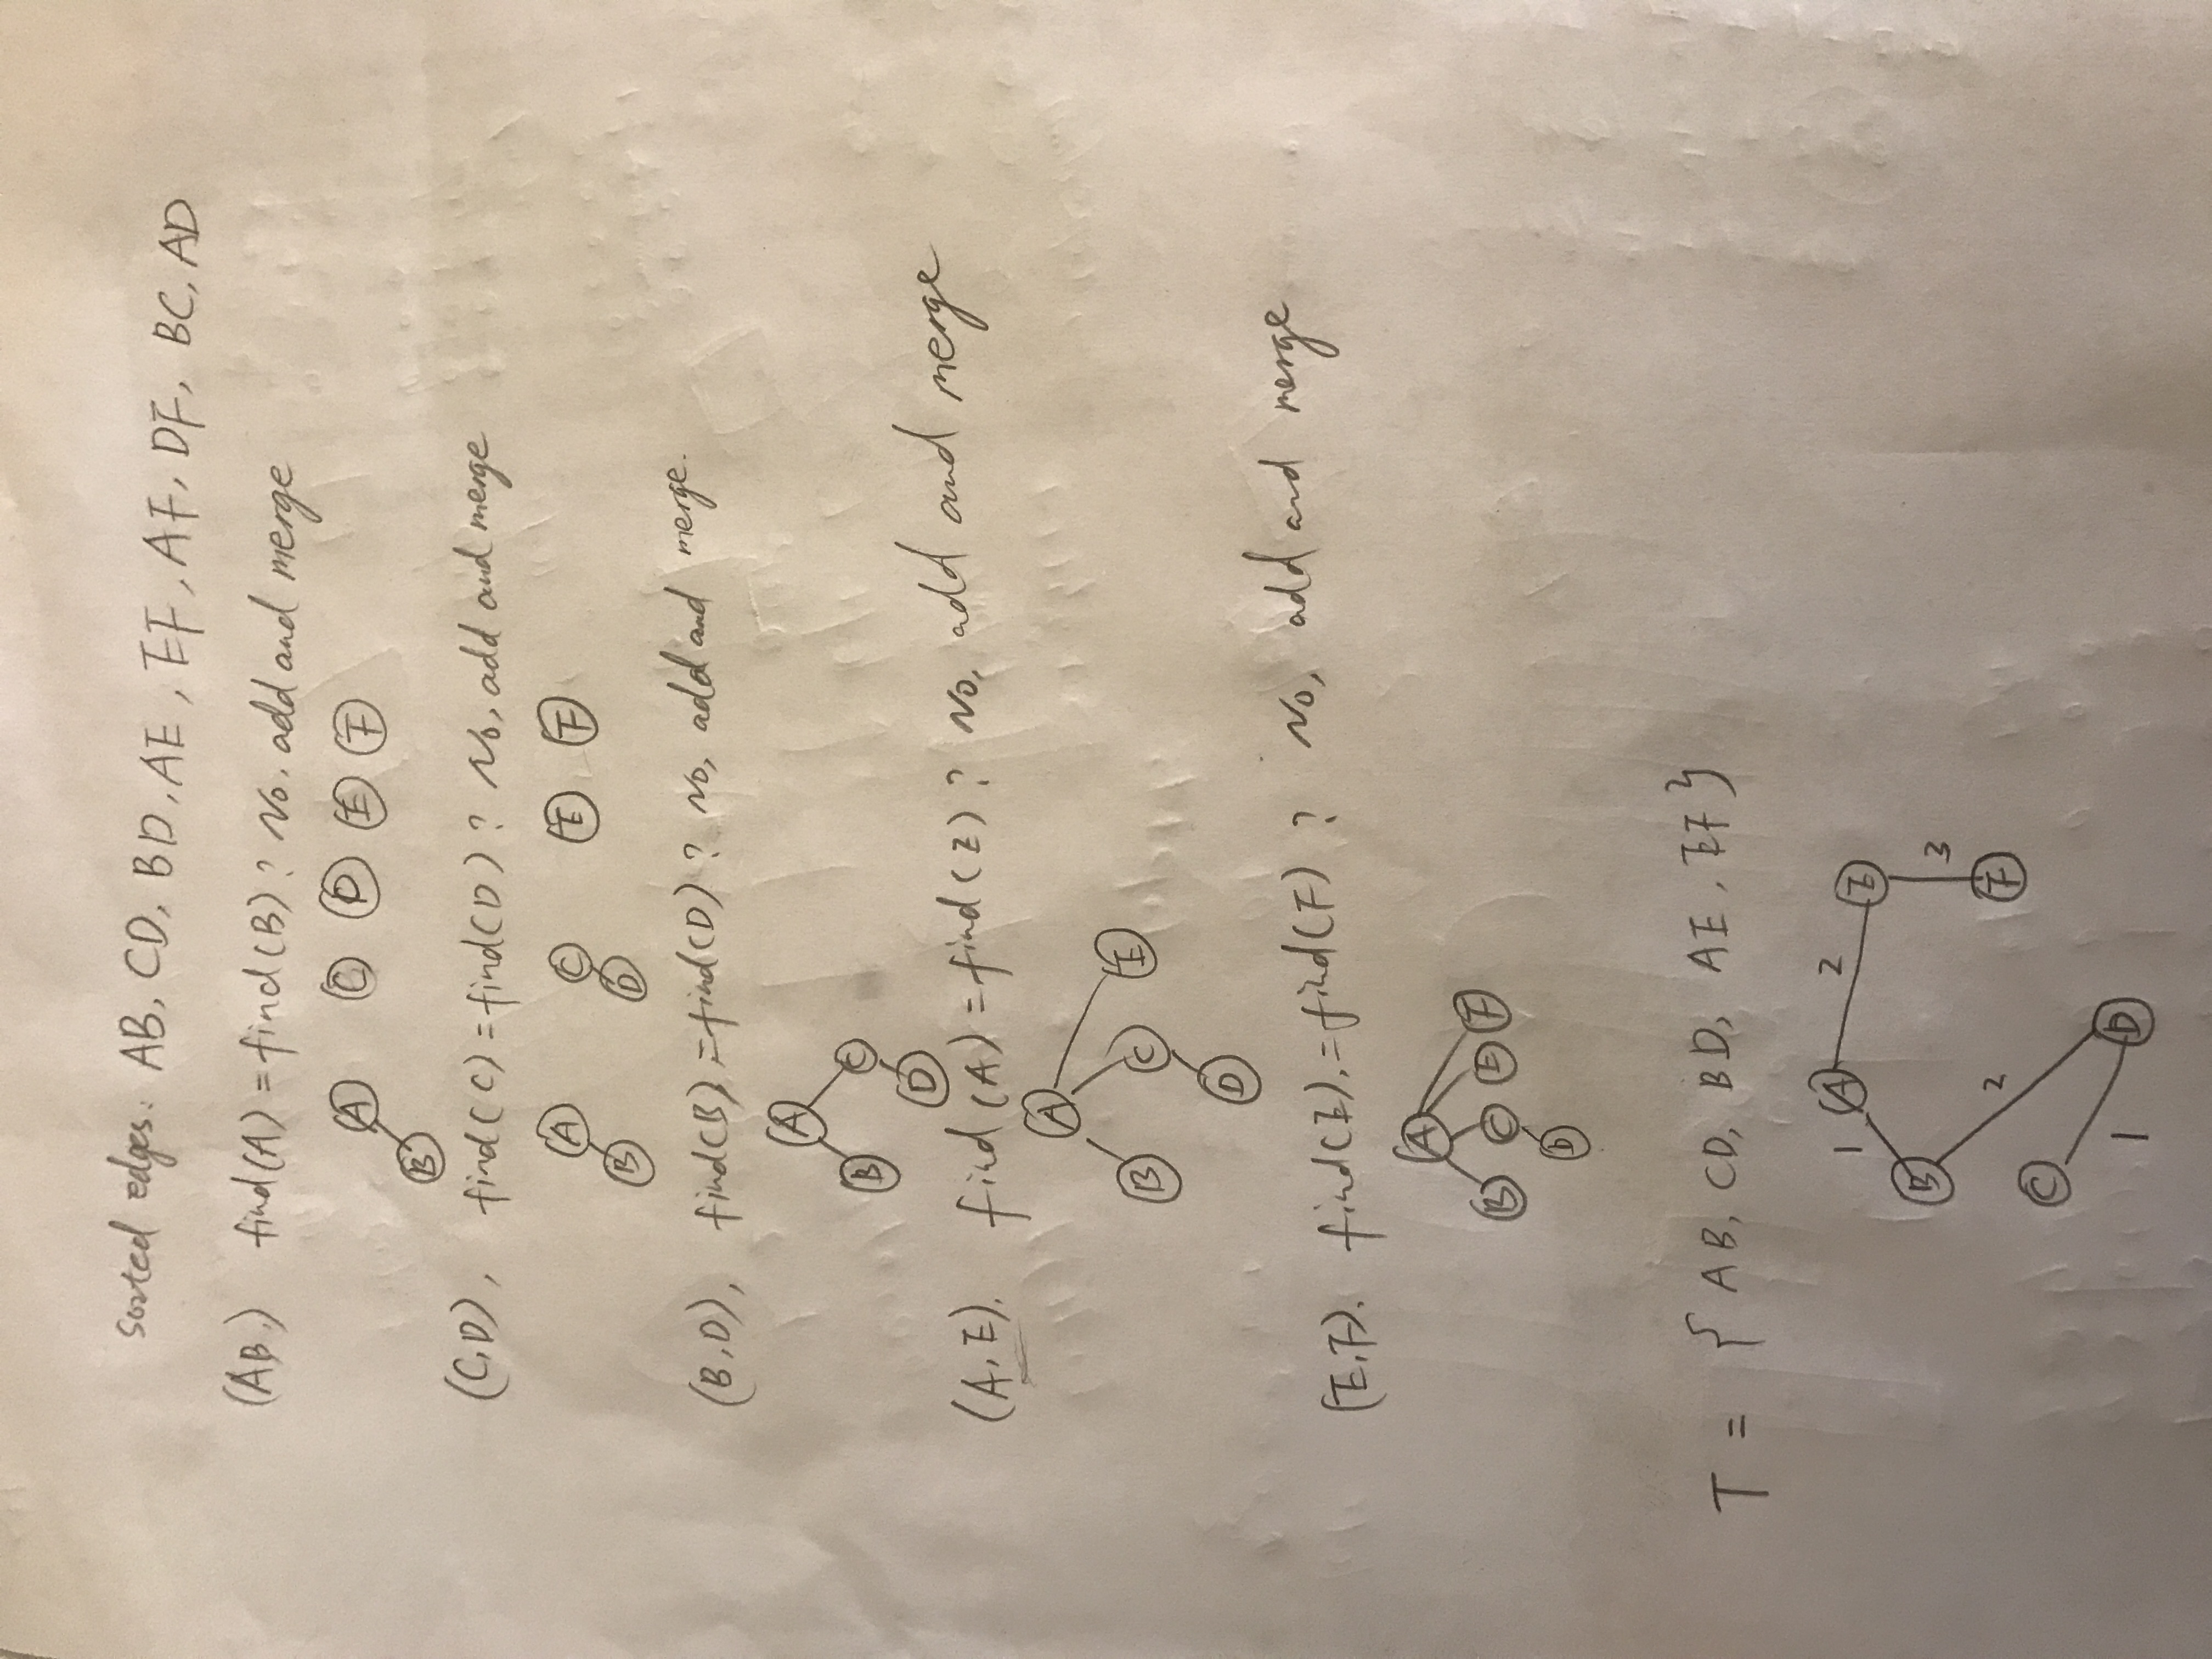 Sorted edges: AB, CD, BD, AE, EF, AF, DF, BC, AD
(AB.) find(A) = find(B)? No. add and merge
A C D E F
B
(C,D), find(C) = find(D)? No, add and merge
A C E F
B D
(B,D), find(B) = find(D)? No, add and merge.
A
B C
D
(A,E). find(A) = find(E)? No, add and merge
A
B C E
D
(E,F). find(E), = find(F)? No, add and merge
A
B C E F
D
T = { AB, CD, BD, AE, EF }
1 A 2 E
B 3
2 F
C
1 D